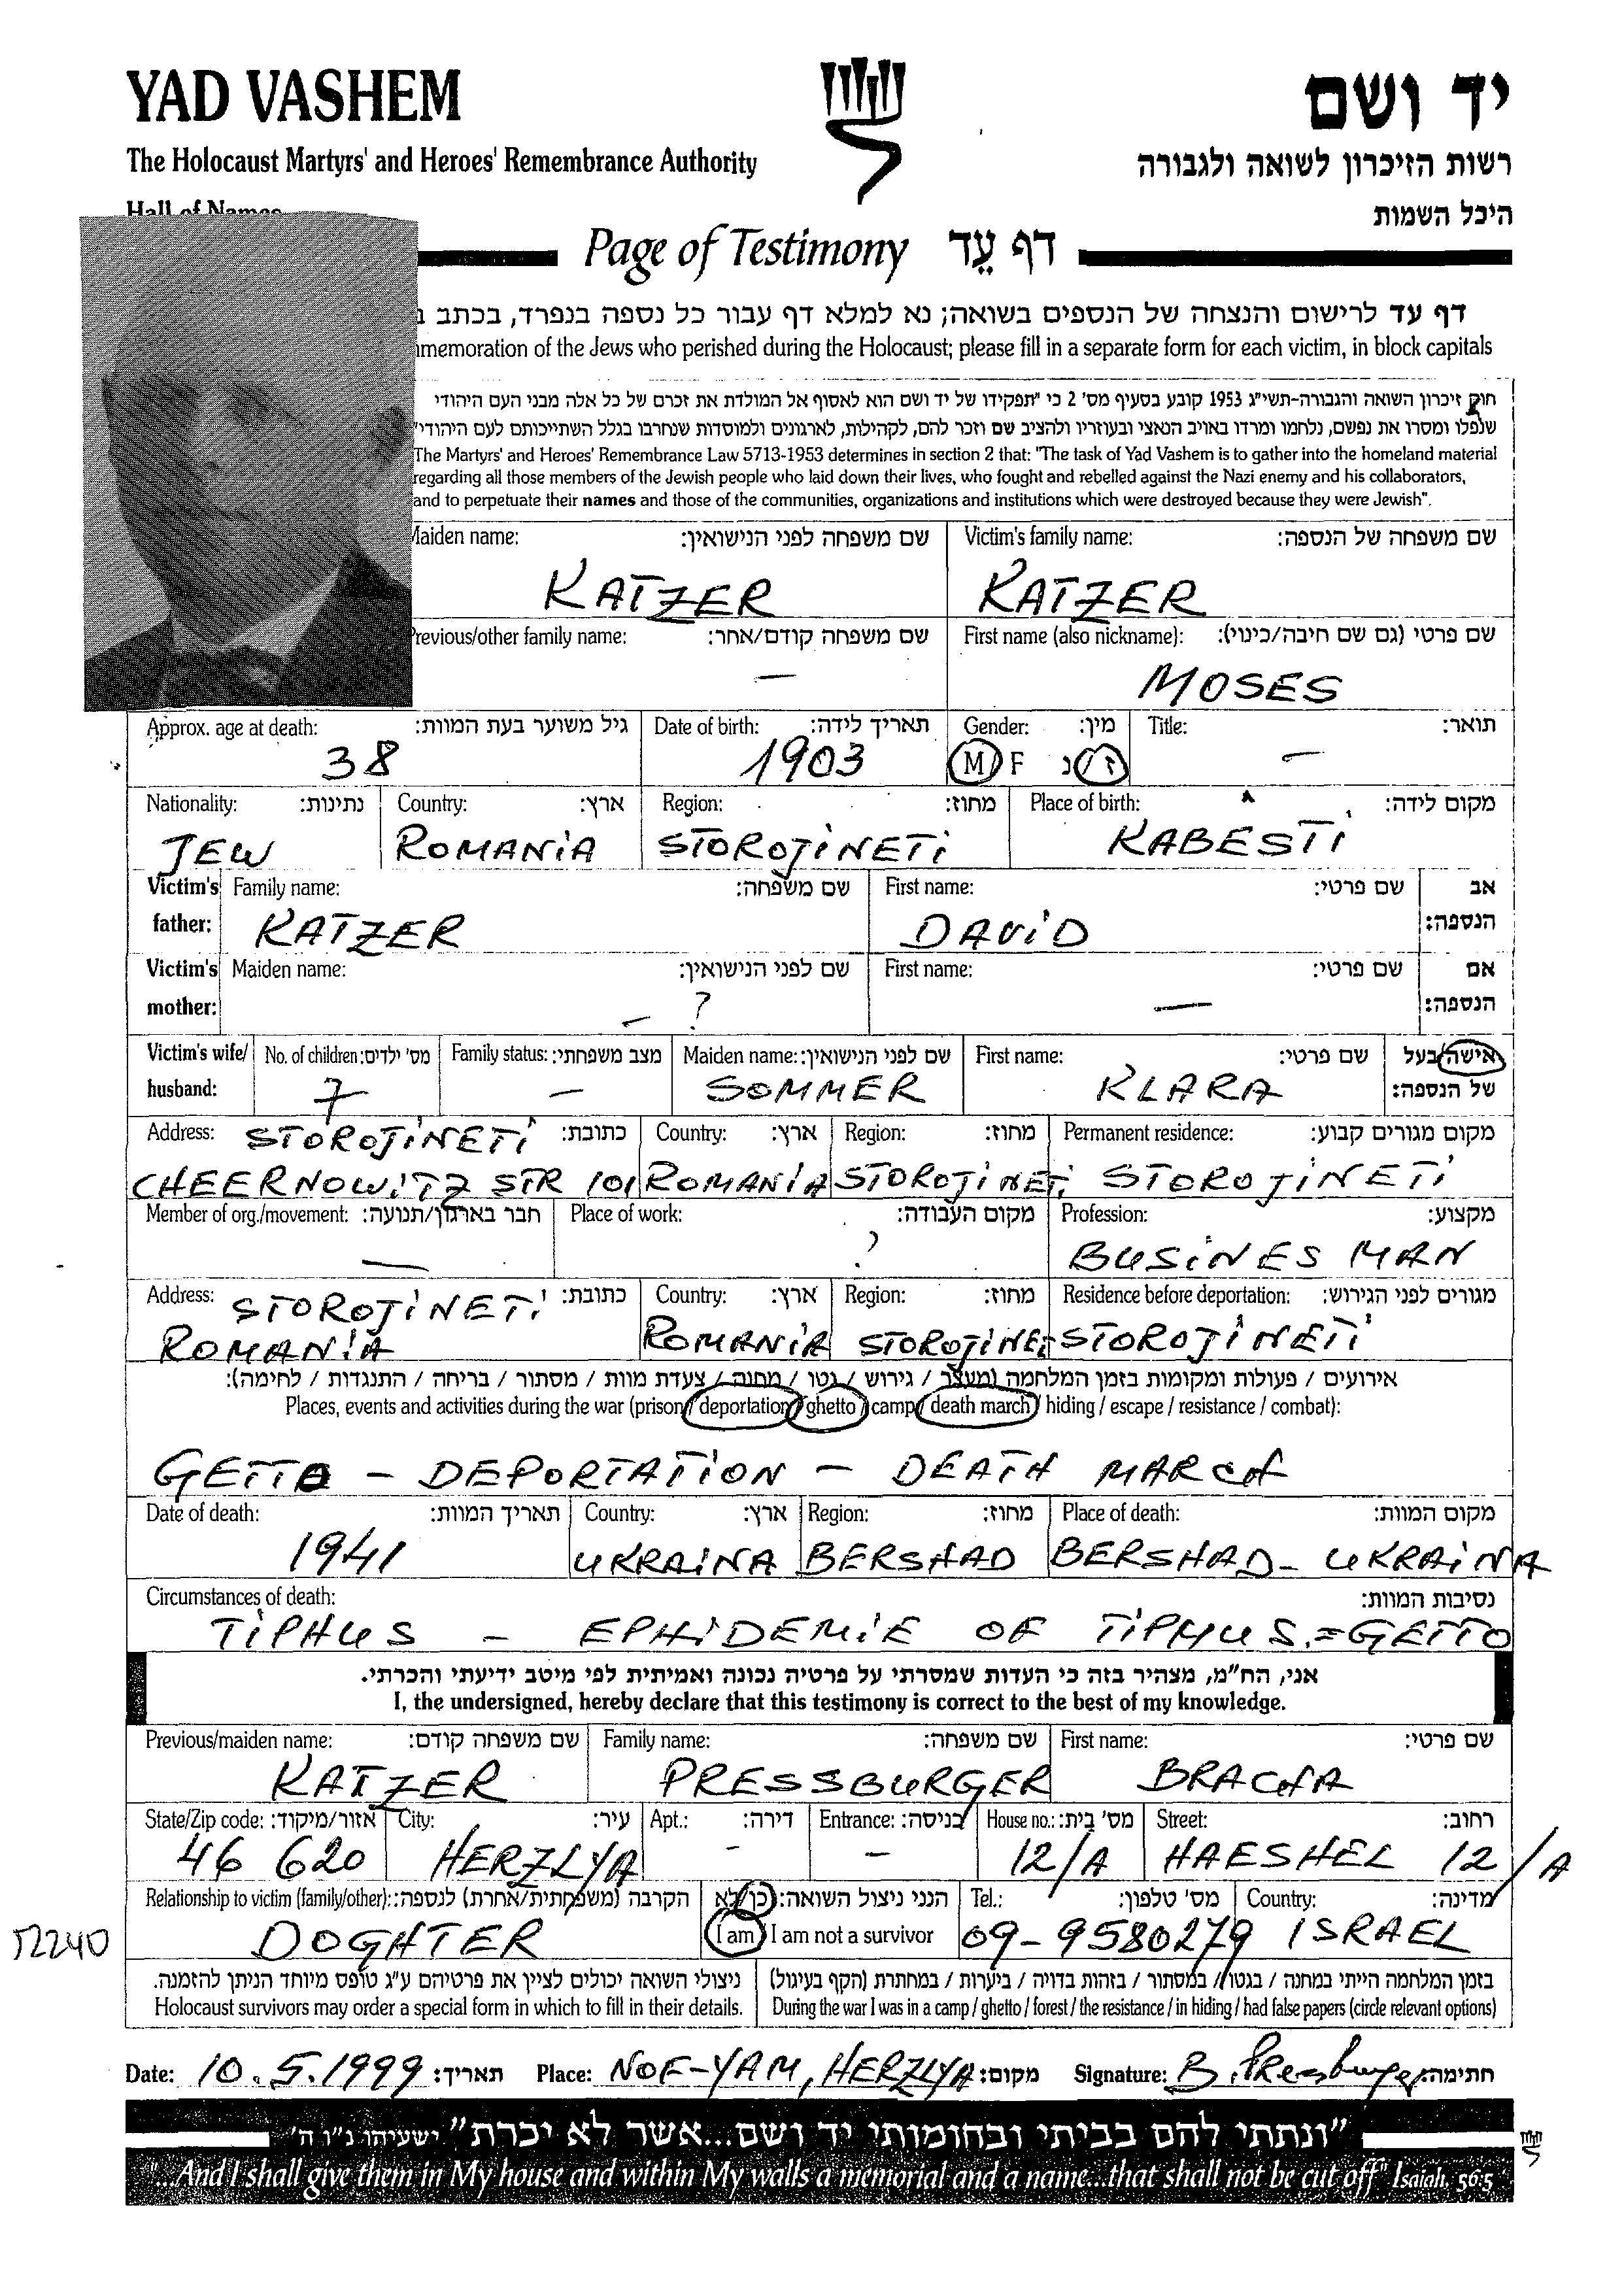 YAD VASHEM
יד ושם
The Holocaust Martyrs' and Heroes' Remembrance Authority
רשות הזיכרון לשואה ולגבורה
Hall of Names
היכל השמות
Page of Testimony דף עֵד
דף עד לרישום והנצחה של הנספים בשואה; נא למלא דף עבור כל נספה בנפרד, בכתב
memoration of the Jews who perished during the Holocaust; please fill in a separate form for each victim, in block capitals
חוק זיכרון השואה והגבורה-תשי"ג 1953 קובע בסעיף מס' 2 כי "תפקידו של יד ושם הוא לאסוף אל המולדת את זכרם של כל אלה מבני העם היהודי
שנפלו ומסרו את נפשם, נלחמו ומרדו באויב הנאצי ובעוזריו ולהציב שם וזכר להם, לקהילות, לארגונים ולמוסדות שנחרבו בגלל השתייכותם לעם היהודי"
The Martyrs' and Heroes' Remembrance Law 5713-1953 determines in section 2 that: "The task of Yad Vashem is to gather into the homeland material
regarding all those members of the Jewish people who laid down their lives, who fought and rebelled against the Nazi enemy and his collaborators,
and to perpetuate their names and those of the communities, organizations and institutions which were destroyed because they were Jewish".
Maiden name: שם משפחה לפני הנישואין: Victim's family name: שם משפחה של הנספה:
KATZER KATZER
Previous/other family name: שם משפחה קודם/אחר: First name (also nickname): שם פרטי (גם שם חיבה/כינוי):
— MOSES
Approx. age at death: גיל משוער בעת המוות: Date of birth: תאריך לידה: Gender: מין: Title: תואר:
38 1903 M F ז/נ —
Nationality: נתינות: Country: ארץ: Region: מחוז: Place of birth: מקום לידה:
JEW ROMANIA STOROJINETI KABESTI
Victim's Family name: שם משפחה: First name: שם פרטי: אב
father: KATZER DAVID הנספה:
Victim's Maiden name: שם לפני הנישואין: First name: שם פרטי: אם
mother: — ? — הנספה:
Victim's wife/ No. of children: מס' ילדים: Family status: מצב משפחתי: Maiden name: שם לפני הנישואין: First name: שם פרטי: אישה/בעל
husband: 7 — SOMMER KLARA של הנספה:
Address: STOROJINETI כתובת: Country: ארץ: Region: מחוז: Permanent residence: מקום מגורים קבוע:
CHEERNOWITZ STR 101 ROMANIA STOROJINETI STOROJINETI
Member of org./movement: חבר בארגון/תנועה: Place of work: מקום העבודה: Profession: מקצוע:
— ? BUSINES MAN
Address: STOROJINETI כתובת: Country: ארץ: Region: מחוז: Residence before deportation: מגורים לפני הגירוש:
ROMANIA ROMANIA STOROJINETI STOROJINETI
אירועים / פעולות ומקומות בזמן המלחמה (מעצר / גירוש / גטו / מחנה / צעדת מוות / מסתור / בריחה / התנגדות / לחימה):
Places, events and activities during the war (prison/ deportation/ ghetto / camp/ death march / hiding / escape / resistance / combat):
GETTO – DEPORTATION – DEATH MARCH
Date of death: תאריך המוות: Country: ארץ: Region: מחוז: Place of death: מקום המוות:
1941 UKRAINA BERSHAD BERSHAD - UKRAINA
Circumstances of death: נסיבות המוות:
TIPHUS – EPHIDEMIE OF TIPHUS.=GETTO
אני, הח"מ, מצהיר בזה כי העדות שמסרתי על פרטיה נכונה ואמיתית לפי מיטב ידיעתי והכרתי.
I, the undersigned, hereby declare that this testimony is correct to the best of my knowledge.
Previous/maiden name: שם משפחה קודם: Family name: שם משפחה: First name: שם פרטי:
KATZER PRESSBURGER BRACHA
State/Zip code: אזור/מיקוד: City: עיר: Apt.: דירה: Entrance: כניסה: House no.: מס' בית: Street: רחוב:
46 620 HERZLYA – – 12/A HAESHEL 12/A
Relationship to victim (family/other): הקרבה (משפחתית/אחרת) לנספה: הנני ניצול השואה: כן/לא Tel.: מס' טלפון: Country: מדינה:
DOGHTER I am / I am not a survivor 09-9580279 ISRAEL
52240
ניצולי השואה יכולים לציין את פרטיהם ע"ג טופס מיוחד הניתן להזמנה. בזמן המלחמה הייתי במחנה / בגטו / במסתור / בזהות בדויה / ביערות / במחתרת (הקף בעיגול)
Holocaust survivors may order a special form in which to fill in their details. During the war I was in a camp / ghetto / forest / the resistance / in hiding / had false papers (circle relevant options)
Date: 10.5.1999 תאריך: Place: NOF-YAM, HERZLYA מקום: Signature: B. Pressburger חתימה:
"ונתתי להם בביתי ובחומותי יד ושם...אשר לא יכרת" ישעיהו נ"ו ה'
"...And I shall give them in My house and within My walls a memorial and a name...that shall not be cut off" Isaiah, 56:5